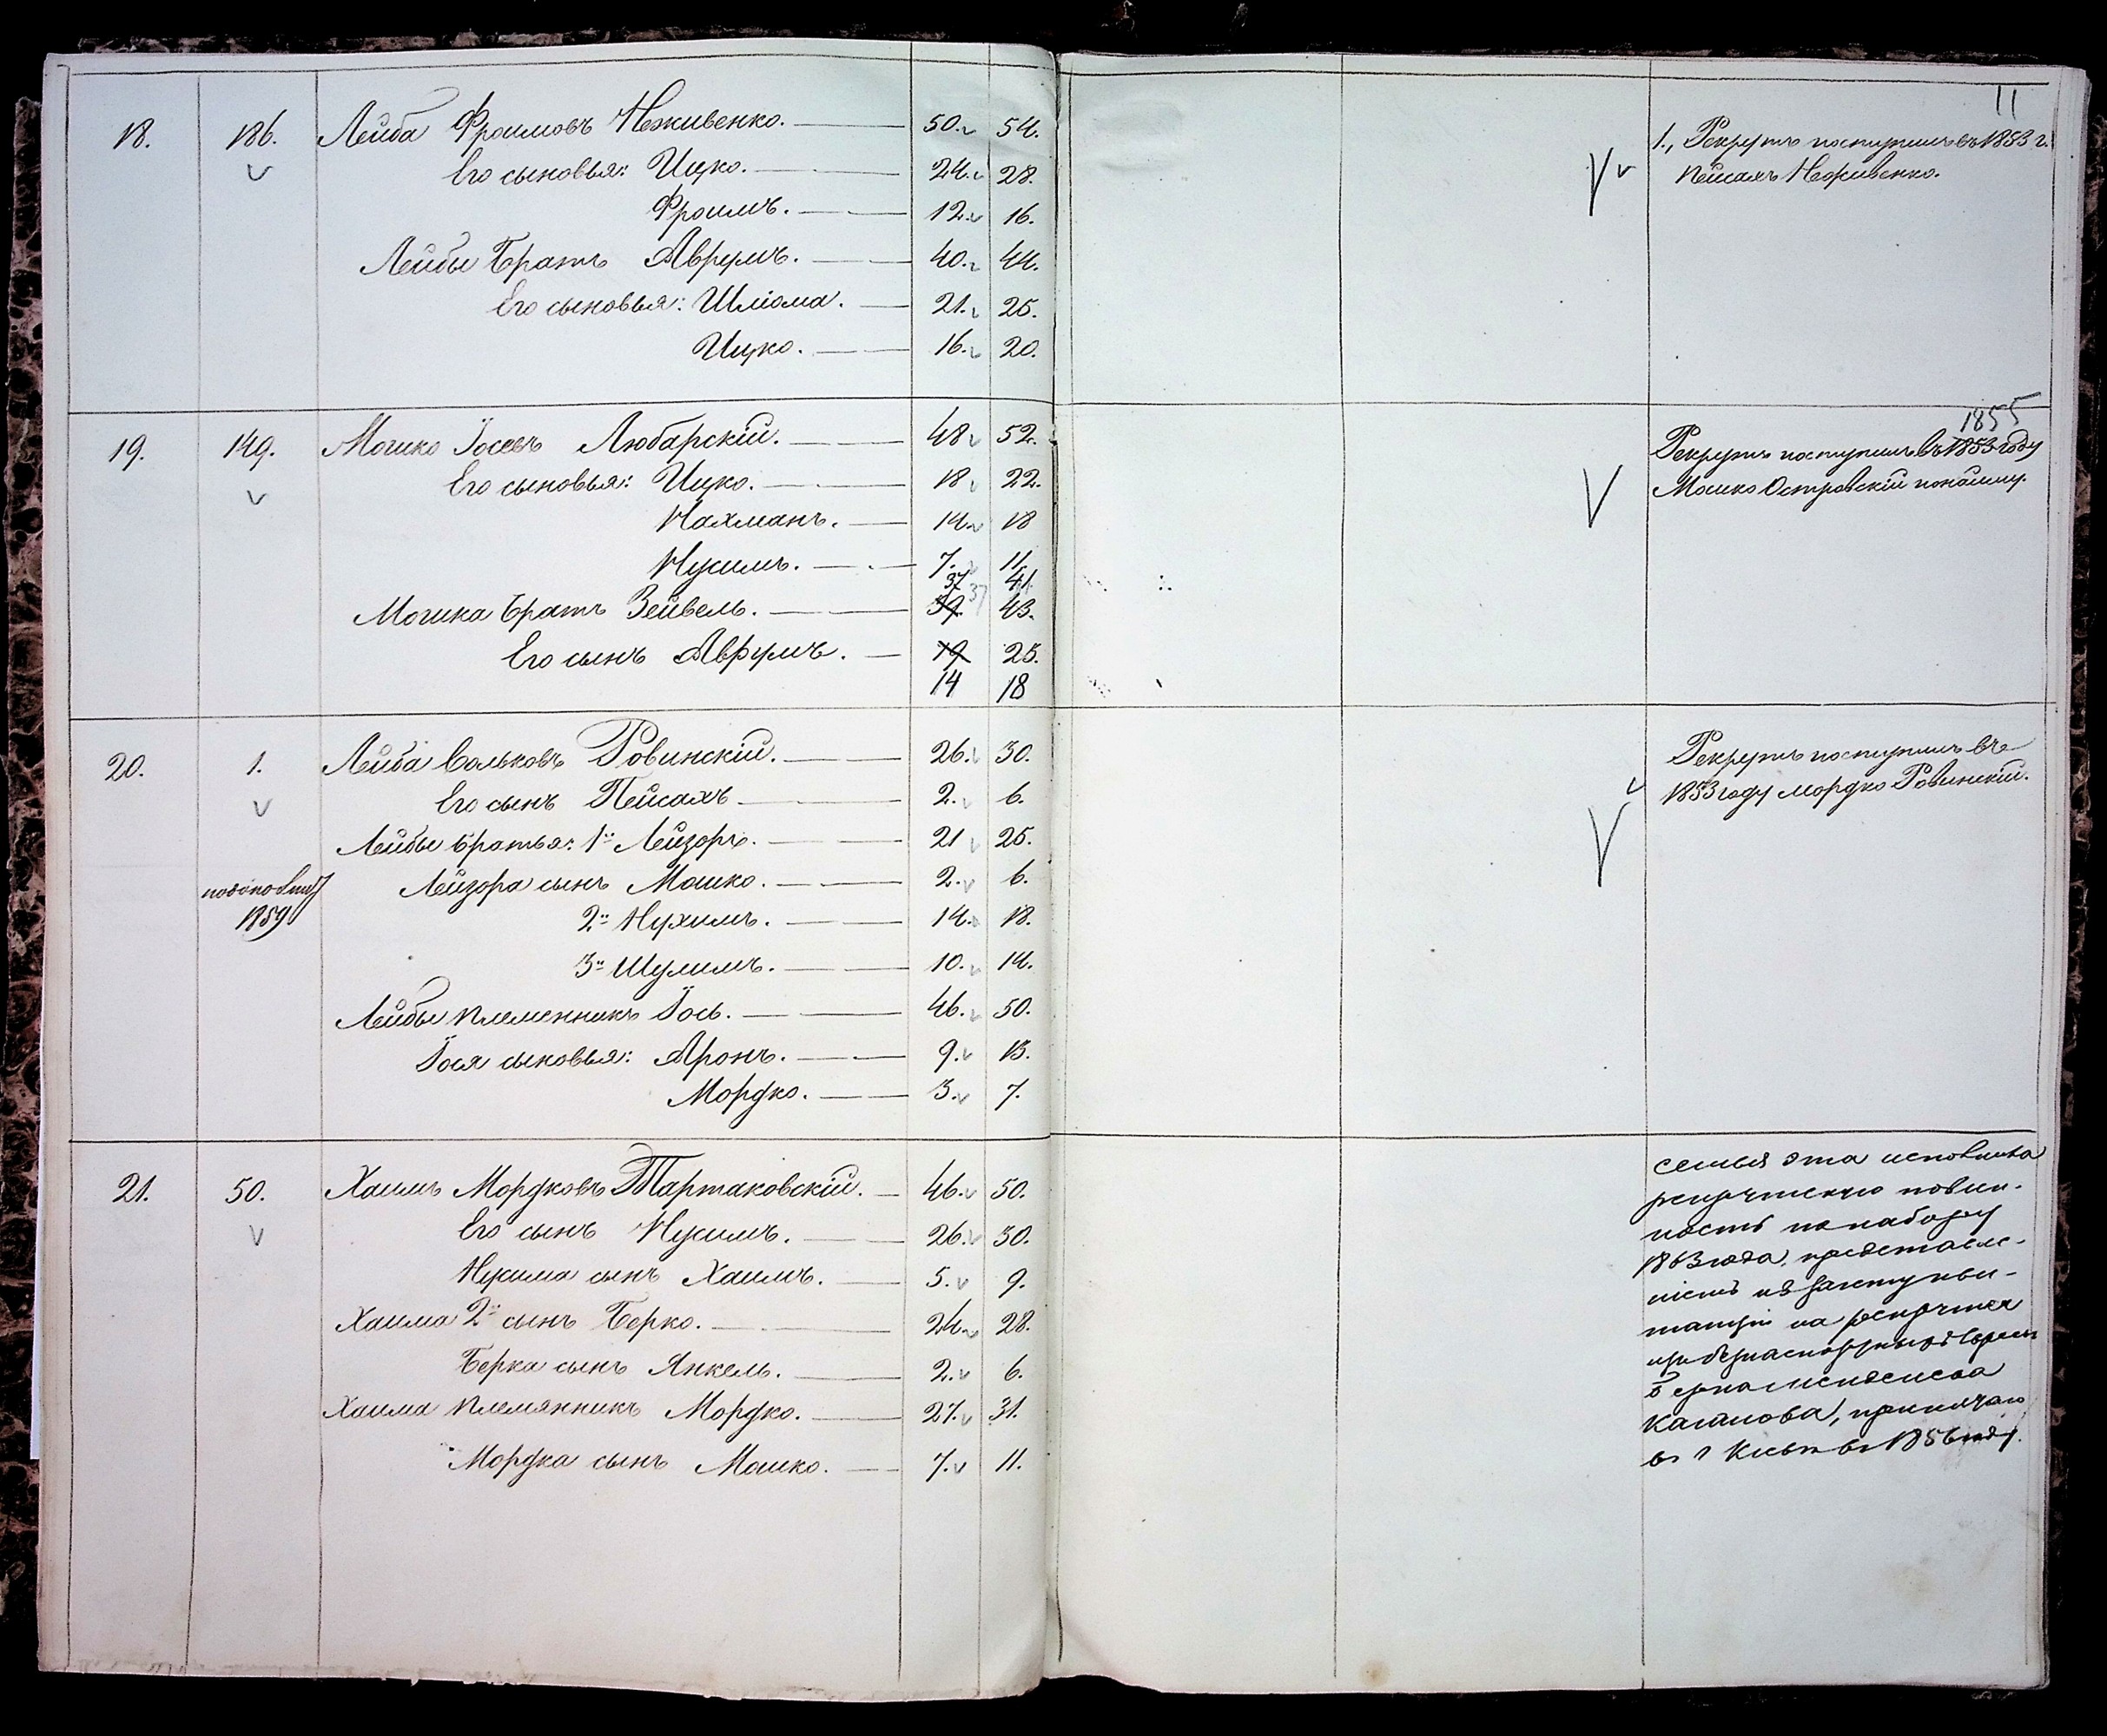 11
18. 186. Лейба Фроимовъ Неживенко. 50. 54. 1., Рекрутъ поступилъ въ 1853 г.
Его сыновья: Ицко. 24. 28. Пейсахъ Неживенко.
Фроимъ. 12. 16.
Лейбы братъ Аврумъ. 40. 44.
Его сыновья: Шліома. 21. 25.
Ицко. 16. 20.
1855
19. 149. Мошко Іосевъ Любарскій. 48. 52. Рекрутъ поступилъ въ 1853 году
Его сыновья: Ицко. 18 22. Мошко Островскій по найму.
Нахманъ. 14. 18
Нусимъ. 7. 11.
37 37 41
Мошка братъ Зейвель. 39. 43.
Его сынъ Аврумъ. 19 23.
14 18
20. 1. Лейба Вольковъ Ровинскій. 26. 30. Рекрутъ поступилъ въ
Его сынъ Пейсахъ 2. 6. 1853 году Мордко Ровинскій.
Лейбы братья: 1й Лейзоръ. 21 25.
Лейзора сынъ Мошко. 2. 6.
1859 2й Нухимъ. 14. 18.
3й Шулимъ. 10. 14.
Лейбы племенникъ Іось. 46. 50.
Іося сыновья: Аронъ. 9. 13.
Мордко. 3. 7.
21. 50. Хаимъ Мордковъ Тартаковскій. 46. 50.
Его сынъ Нусимъ. 26. 30.
Нусима сынъ Хаимъ. 5. 9.
Хаима 2й сынъ Берко. 24. 28.
Берка сынъ Янкель. 2. 6.
Хаима племянникъ Мордко. 27. 31.
Мордка сынъ Мошко. 7. 11.
семья эта исполнила
рекрутскую повин-
ность по набору
1863 года, представле-
ніемъ
Каганова,
въ г Кіевѣ въ 1856 году.